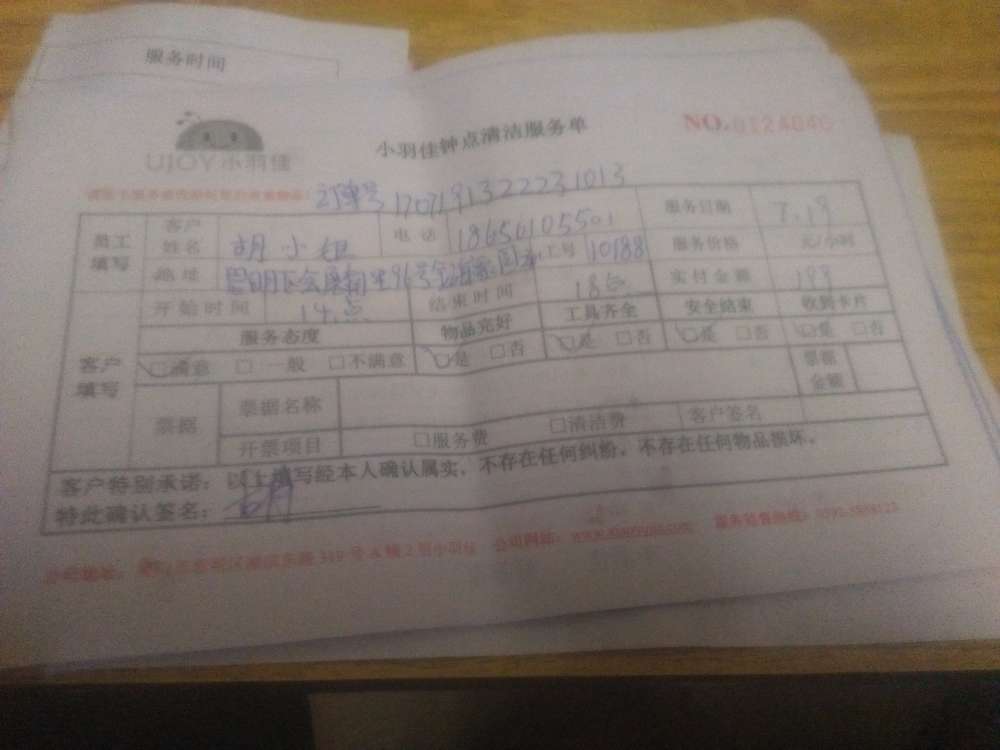 服务时间
UJOY小羽佳
小羽佳钟点清洁服务单
NO.0124040
订单号 17071913222231013
员工填写 客户姓名 胡小姐 电话 18656105501 服务日期 7.19
地址 工号 10188 服务价格 元/小时
客户填写 开始时间 14点 结束时间 18点 实付金额 199
服务态度 物品完好 工具齐全 安全结束 收到卡片
□满意 □一般 □不满意 □是 □否 □是 □否 □是 □否 □是 □否
票据 票据名称 票据金额
开票项目 □服务费 □清洁费 客户签名
客户特别承诺：以上填写经本人确认属实，不存在任何纠纷，不存在任何物品损坏。
特此确认签名：胡
公司网站：